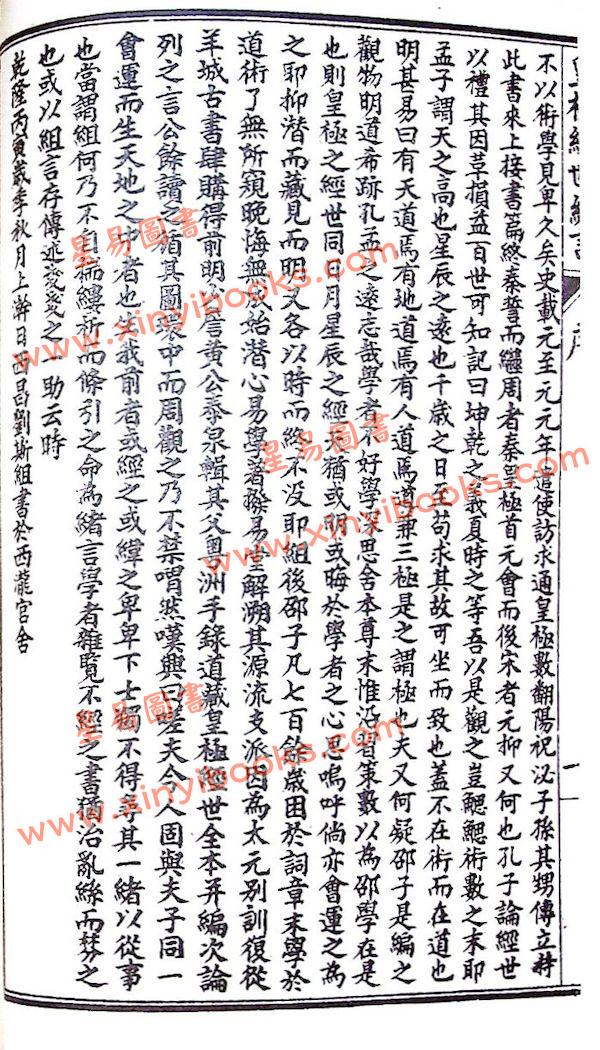 皇極經世緒言
序
一
不以術學見卑久矣史載元至元元年遣使訪求通皇極數翻陽祝泌子孫其甥傅立持
此書來上接書篇終秦誓而繼周者秦皇極首元會而後宋者元抑又何也孔子論經世
以禮其因革損益百世可知記曰坤乾之義夏時之等吾以是觀之豈鰓鰓術數之末耶
孟子謂天之高也星辰之遠也千歲之日至苟求其故可坐而致也蓋不在術而在道也
明甚易曰有天道焉有地道焉有人道焉道兼三極是之謂極也夫又何疑邵子是編之
觀物明道希跡孔孟之遠志哉學者不好學深思舍本尊末惟沿習策數以為邵學在是
也則皇極之經世同日月星辰之經天猶或明或晦於學者之心思嗚呼倘亦會運之為
之耶抑潛而藏見而明又各以時而終不沒耶組後邵子凡七百餘歲困於詞章末學於
道術了無所窺晚悔無成始潛心易學著撥易堂解溯其源流支派因為太元別訓復從
羊城古書肆購得前明公詹黃公泰泉輯其父粵洲手錄道藏皇極經世全本并編次論
列之言公餘讀之循其圖環中而周觀之乃不禁喟然嘆興曰嗟夫今人固與夫子同一
會運而生天地之中者也生我前者或經之或緯之卑卑下士獨不得尋其一緒以從事
也當謂組何乃不自揣縷析而條引之命為緒言學者雜覽不經之書猶治亂絲而棼之
也或以組言存傳述爰爰之一助云時
乾隆丙寅歲季秋月上幹日西昌劉斯組書於西瀧官舍
星易圖書
www.xinyibooks.com
星易圖書
www.xinyibooks.com
星易圖書
www.xinyibooks.com